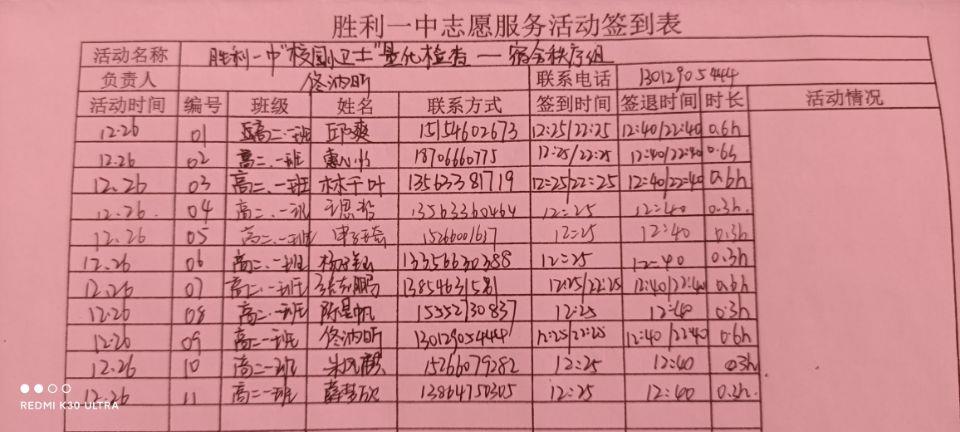 胜利一中志愿服务活动签到表
活动名称 胜利一中"校园小卫士"量化检查 — 宿舍秩序组
负责人 佟汭昕 联系电话 13012905444
活动时间 编号 班级 姓名 联系方式 签到时间 签退时间 时长 活动情况
12.26 01 高二.一班 邱爽 15154602673 12:25/22:25 12:40/22:40 0.6h
12.26 02 高二.一班 18706660775 12:25/22:25 12:40/22:40 0.6h
12.26 03 高二.一班 林千叶 13563381719 12:25/22:25 12:40/22:40 0.6h
12.26. 04 高二.一班 13563360464 12:25 12:40 0.3h.
12.26 05 高二.一班 15266001637 12:25 12:40 0.3h
12.26 06 高二.一班 13356630388 12:25 12:40 0.3h
12.26 07 高二.一班 12:25/22:25 12:40/22:40 0.6h
12.26 08 高二.一班 陈昱帆 15552730837 12:25 12:40 0.3h
12.26 09 高二.一班 佟汭昕 13012905444 12:25/22:25 12:40/22:40 0.6h
12.26 10 高二.一班 15266079282 12:25 12:40 0.3h
12.26 11 高二.一班 薛梦欣 13864750305 12:25 12:40 0.3h.
REDMI K30 ULTRA